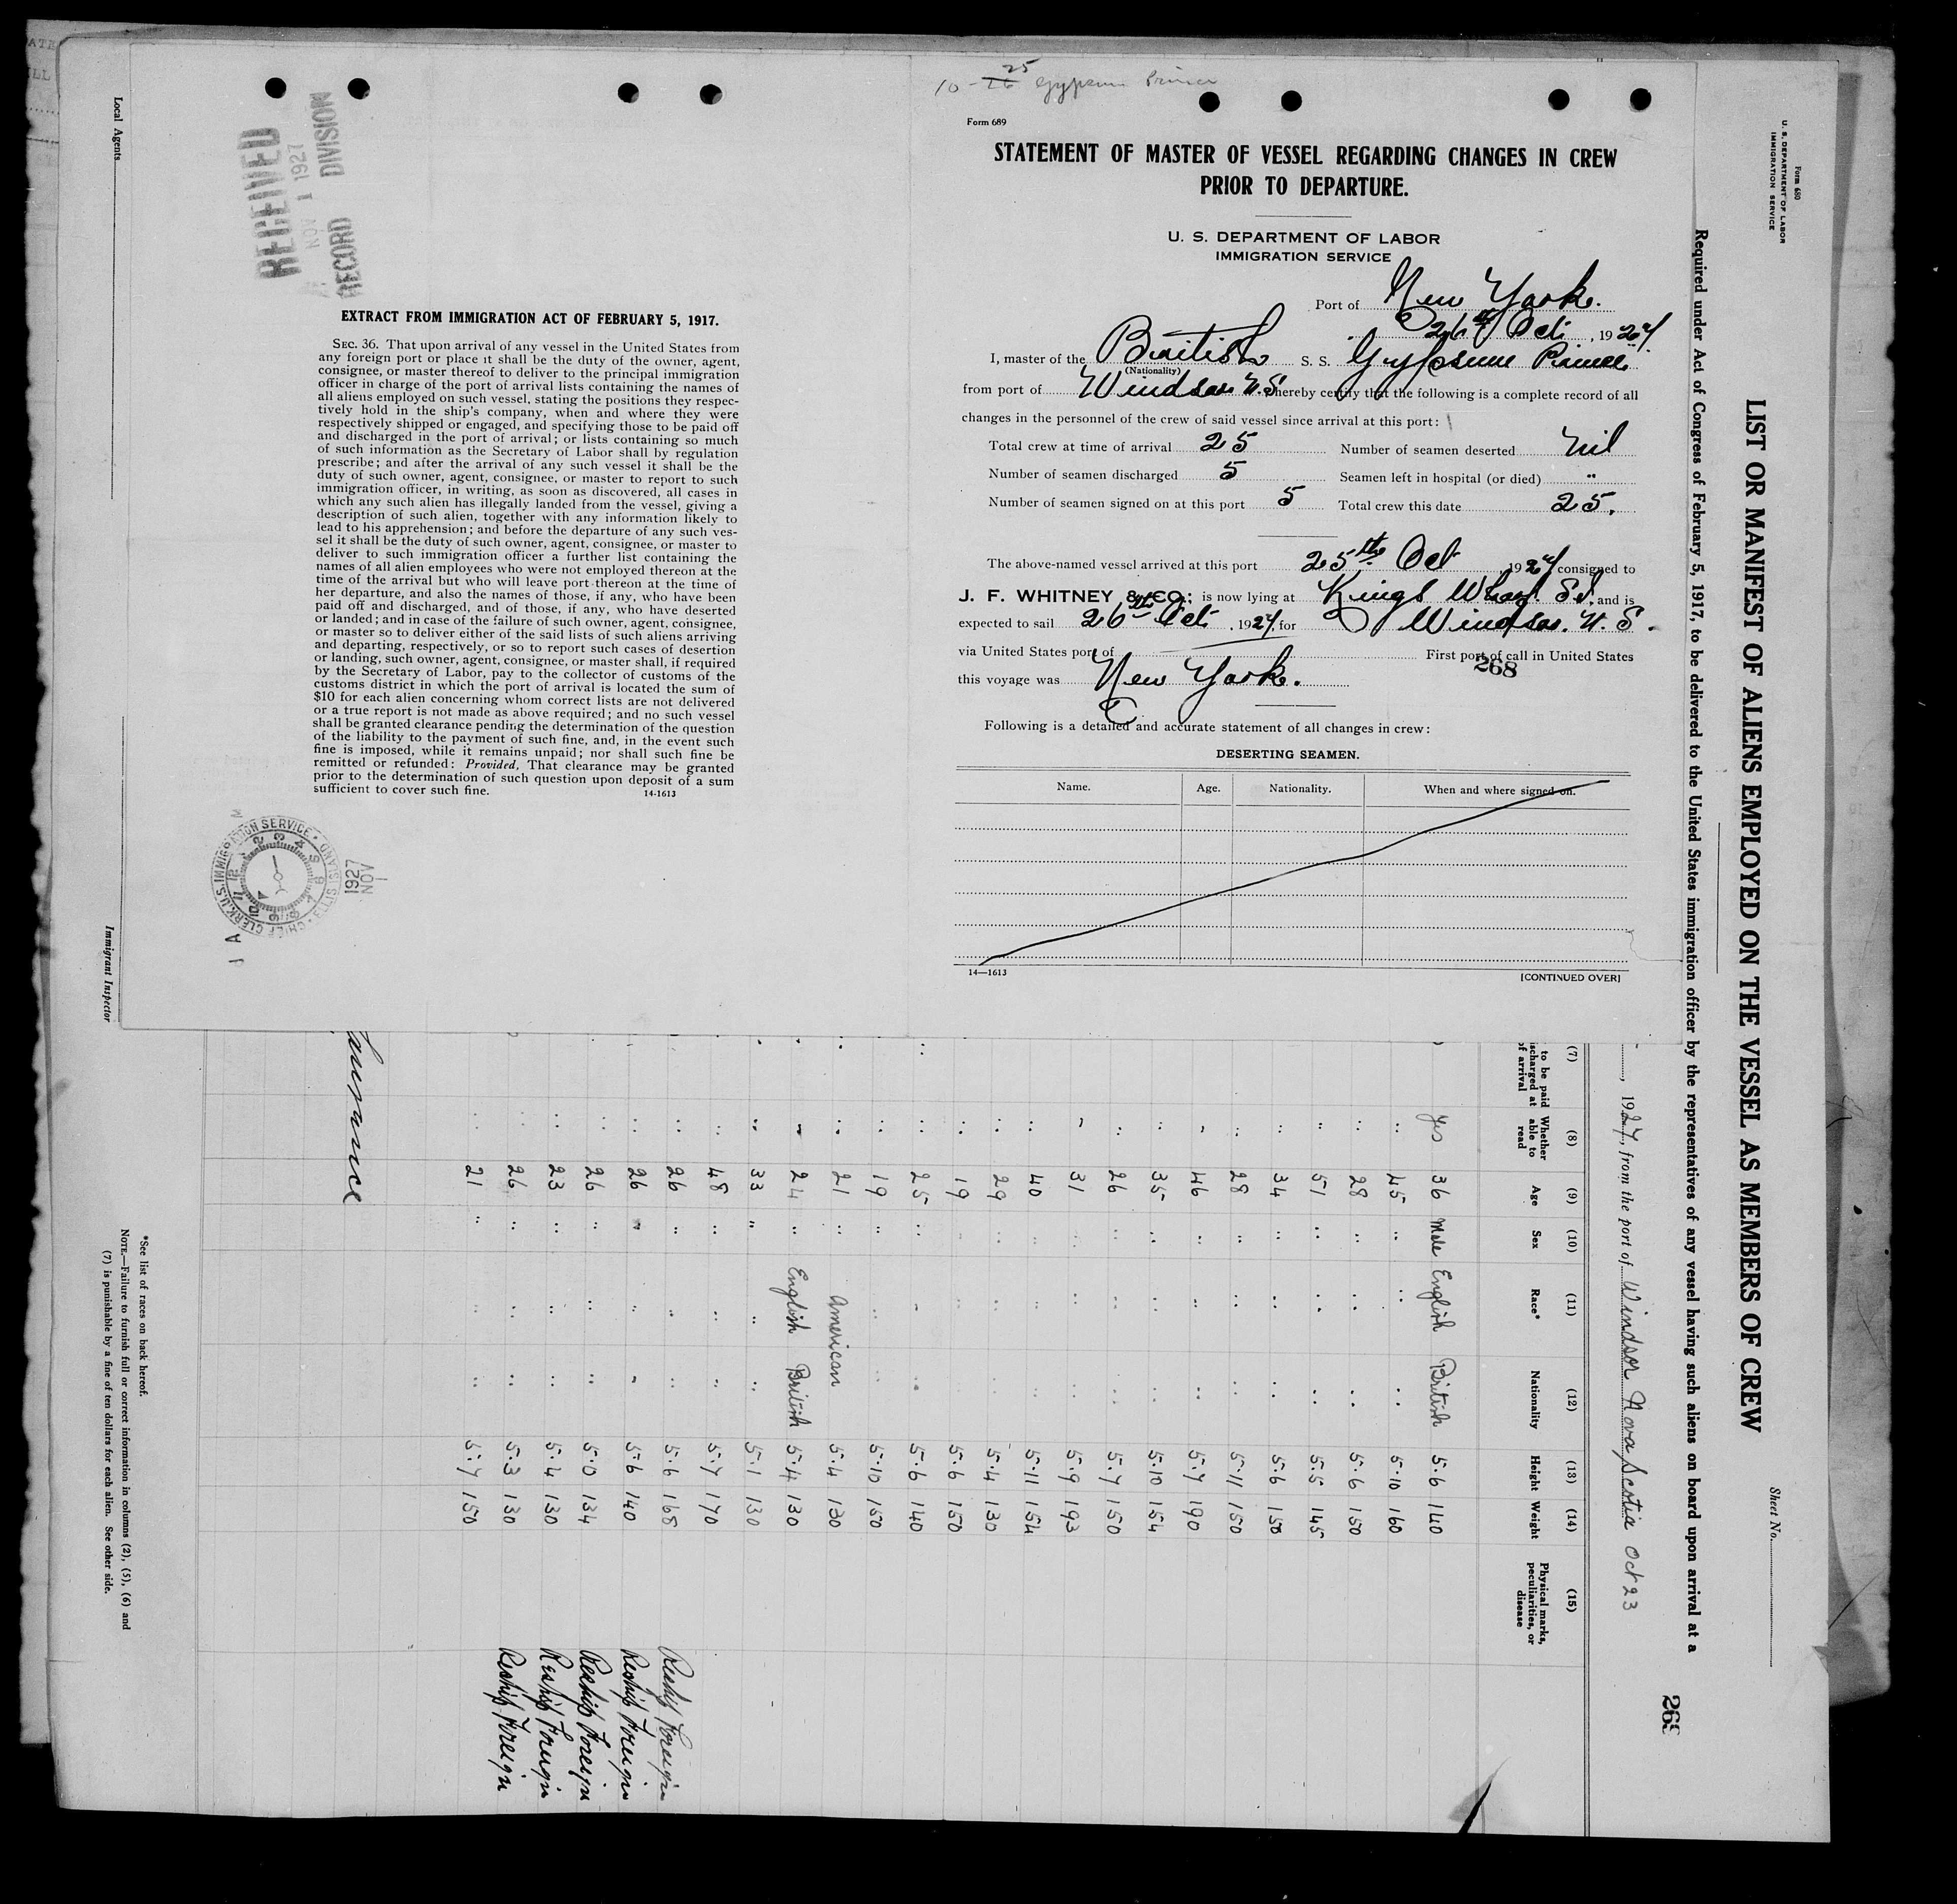 10-26 25 Gypsum Prince
Form 689
STATEMENT OF MASTER OF VESSEL REGARDING CHANGES IN CREW
PRIOR TO DEPARTURE.
U. S. DEPARTMENT OF LABOR
IMMIGRATION SERVICE
Port of New York.
26th Oct. , 1927
I, master of the British S. S. Gypsum Prince
(Nationality)
from port of Windsor N.S. hereby certify that the following is a complete record of all
changes in the personnel of the crew of said vessel since arrival at this port:
Total crew at time of arrival 25 Number of seamen deserted Nil
Number of seamen discharged 5 Seamen left in hospital (or died) "
Number of seamen signed on at this port 5 Total crew this date 25.
The above-named vessel arrived at this port 25th Oct 1927 consigned to
J. F. WHITNEY & CO.; is now lying at Kings Wharf. S.I. and is
expected to sail 26th Oct. , 1927, for Windsor. N. S.
via United States port of First port of call in United States
268
this voyage was New York.
Following is a detailed and accurate statement of all changes in crew:
DESERTING SEAMEN.
Name. Age. Nationality. When and where signed on.
14—1613 [CONTINUED OVER]
RECEIVED
NOV 1 1927
RECORD DIVISION
EXTRACT FROM IMMIGRATION ACT OF FEBRUARY 5, 1917.
SEC. 36. That upon arrival of any vessel in the United States from
any foreign port or place it shall be the duty of the owner, agent,
consignee, or master thereof to deliver to the principal immigration
officer in charge of the port of arrival lists containing the names of
all aliens employed on such vessel, stating the positions they respec-
tively hold in the ship's company, when and where they were
respectively shipped or engaged, and specifying those to be paid off
and discharged in the port of arrival; or lists containing so much
of such information as the Secretary of Labor shall by regulation
prescribe; and after the arrival of any such vessel it shall be the
duty of such owner, agent, consignee, or master to report to such
immigration officer, in writing, as soon as discovered, all cases in
which any such alien has illegally landed from the vessel, giving a
description of such alien, together with any information likely to
lead to his apprehension; and before the departure of any such ves-
sel it shall be the duty of such owner, agent, consignee, or master to
deliver to such immigration officer a further list containing the
names of all alien employees who were not employed thereon at the
time of the arrival but who will leave port thereon at the time of
her departure, and also the names of those, if any, who have been
paid off and discharged, and of those, if any, who have deserted
or landed; and in case of the failure of such owner, agent, consignee,
or master so to deliver either of the said lists of such aliens arriving
and departing, respectively, or so to report such cases of desertion
or landing, such owner, agent, consignee, or master shall, if required
by the Secretary of Labor, pay to the collector of customs of the
customs district in which the port of arrival is located the sum of
$10 for each alien concerning whom correct lists are not delivered
or a true report is not made as above required; and no such vessel
shall be granted clearance pending the determination of the question
of the liability to the payment of such fine, and, in the event such
fine is imposed, while it remains unpaid; nor shall such fine be
remitted or refunded: Provided, That clearance may be granted
prior to the determination of such question upon deposit of a sum
sufficient to cover such fine. 14-1613
CHIEF CLERK, U.S. IMMIGRATION SERVICE • ELLIS ISLAND
NOV 1 1927
Form 680
U. S. DEPARTMENT OF LABOR
IMMIGRATION SERVICE
Sheet No.
LIST OR MANIFEST OF ALIENS EMPLOYED ON THE VESSEL AS MEMBERS OF CREW
Required under Act of Congress of February 5, 1917, to be delivered to the United States immigration officer by the representatives of any vessel having such aliens on board upon arrival at a
, 1927, from the port of Windsor Nova Scotia Oct 23
(7) (8) (9) (10) (11) (12) (13) (14) (15)
to be paid discharged at of arrival Whether able to read Age Sex Race* Nationality Height Weight Physical marks, peculiarities, or disease
Yes 36 Male English British 5.6 140
" 45 " " " 5.10 160
" 28 " " " 5.6 150
" 51 " " " 5.5 145
" 34 " " " 5.6 150
" 28 " " " 5.11 150
" 46 " " " 5.7 190
" 35 " " " 5.10 154
" 26 " " " 5.7 150
" 31 " " " 5.9 193
" 40 " " " 5.11 154
" 29 " " " 5.4 130
" 19 " " " 5.6 150
" 25 " " " 5.6 140
" 19 " " " 5.10 150
" 21 " American 5.4 130
" 24 " English British 5.4 130
" 33 " " " 5.1 130
" 48 " " " 5.7 170
" 26 " " " 5.6 168 Reship Foreign
" 26 " " " 5.6 140 Reship Foreign
" 26 " " " 5.0 134 Reship Foreign
" 23 " " " 5.4 130 Reship Foreign
" 26 " " " 5.3 130 Reship Foreign
" 21 " " " 5.7 150
Local Agents
Immigrant Inspector
*See list of races on back hereof.
NOTE.—Failure to furnish full or correct information in columns (2), (5), (6) and
(7) is punishable by a fine of ten dollars for each alien. See other side.